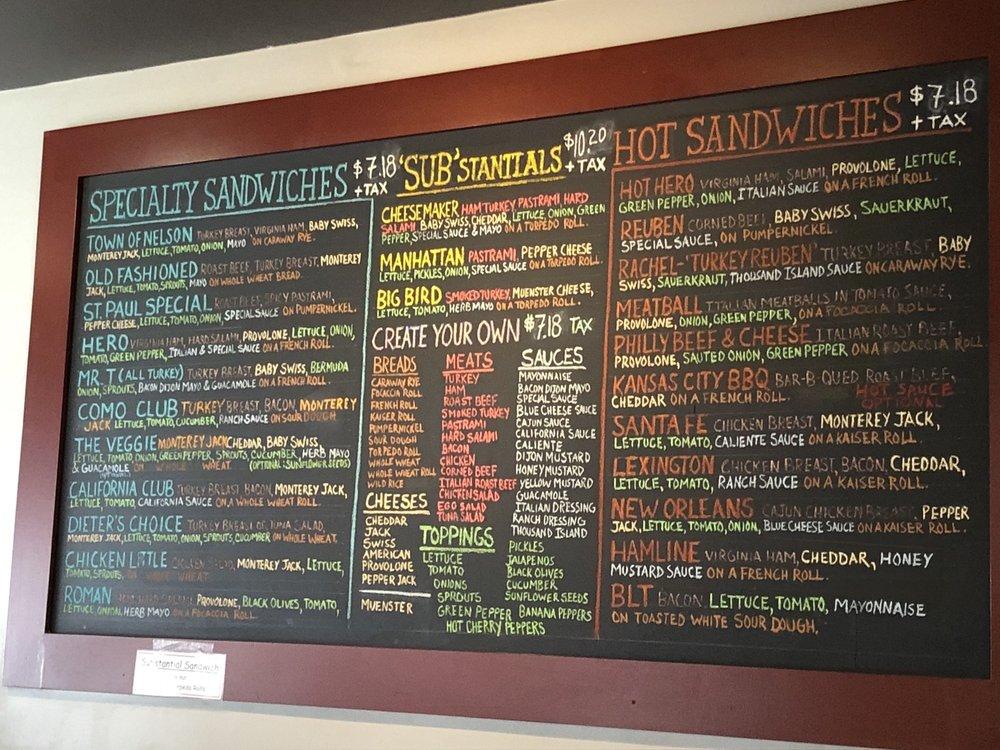 SPECIALTY SANDWICHES $7.18 + TAX
TOWN OF NELSON TURKEY BREAST, VIRGINIA HAM, BABY SWISS,
MONTEREY JACK, LETTUCE, TOMATO, ONION, MAYO ON CARAWAY RYE.
OLD FASHIONED ROAST BEEF, TURKEY BREAST, MONTEREY
JACK, LETTUCE, TOMATO, SPROUTS, MAYO ON WHOLE WHEAT BREAD.
ST. PAUL SPECIAL ROAST BEEF, SPICY PASTRAMI,
PEPPER CHEESE, LETTUCE, TOMATO, ONION, SPECIAL SAUCE ON PUMPERNICKEL.
HERO VIRGINIA HAM, HARD SALAMI, PROVOLONE, LETTUCE, ONION,
TOMATO, GREEN PEPPER, ITALIAN & SPECIAL SAUCE ON A FRENCH ROLL.
MR. T (ALL TURKEY) TURKEY BREAST, BABY SWISS, BERMUDA
ONION, SPROUTS, BACON DIJON MAYO & GUACAMOLE ON A FRENCH ROLL.
COMO CLUB TURKEY BREAST, BACON, MONTEREY
JACK LETTUCE, TOMATO, CUCUMBER, RANCH SAUCE ON SOUR DOUGH
THE VEGGIE MONTEREY JACK CHEDDAR, BABY SWISS,
LETTUCE, TOMATO, ONION, GREEN PEPPER, SPROUTS, CUCUMBER, HERB MAYO
& GUACAMOLE ON WHOLE WHEAT. (OPTIONAL: SUNFLOWER SEEDS)
(OPTIONAL)
CALIFORNIA CLUB TURKEY BREAST, BACON, MONTEREY JACK,
LETTUCE, TOMATO, CALIFORNIA SAUCE ON A WHOLE WHEAT ROLL.
DIETER'S CHOICE TURKEY BREAST OR TUNA SALAD,
MONTEREY JACK, LETTUCE, TOMATO, ONION, SPROUTS, CUCUMBER ON WHOLE WHEAT.
CHICKEN LITTLE CHICKEN SALAD, MONTEREY JACK, LETTUCE,
TOMATO, SPROUTS, ON WHOLE WHEAT.
ROMAN HAM, HARD SALAMI, PROVOLONE, BLACK OLIVES, TOMATO,
LETTUCE, ONION, HERB MAYO ON A FOCACCIA ROLL.
'SUB'STANTIALS $10.20 + TAX
CHEESEMAKER HAM, TURKEY, PASTRAMI, HARD
SALAMI, BABY SWISS, CHEDDAR, LETTUCE, ONION, GREEN
PEPPER, SPECIAL SAUCE & MAYO ON A TORPEDO ROLL.
MANHATTAN PASTRAMI, PEPPER CHEESE
LETTUCE, PICKLES, ONION, SPECIAL SAUCE ON A TORPEDO ROLL.
BIG BIRD SMOKED TURKEY, MUENSTER CHEESE,
LETTUCE, TOMATO, HERB MAYO ON A TORPEDO ROLL.
CREATE YOUR OWN $7.18 TAX
BREADS
CARAWAY RYE
FOCACCIA ROLL
FRENCH ROLL
KAISER ROLL
PUMPERNICKEL
SOUR DOUGH
TORPEDO ROLL
WHOLE WHEAT
WHOLE WHEAT ROLL
WILD RICE
CHEESES
CHEDDAR
JACK
SWISS
AMERICAN
PROVOLONE
PEPPER JACK
MUENSTER
MEATS
TURKEY
HAM
ROAST BEEF
SMOKED TURKEY
PASTRAMI
HARD SALAMI
BACON
CHICKEN
CORNED BEEF
ITALIAN ROAST BEEF
CHICKEN SALAD
EGG SALAD
TUNA SALAD
SAUCES
MAYONNAISE
BACON DIJON MAYO
SPECIAL SAUCE
BLUE CHEESE SAUCE
CAJUN SAUCE
CALIFORNIA SAUCE
CALIENTE
DIJON MUSTARD
HONEY MUSTARD
YELLOW MUSTARD
GUACAMOLE
ITALIAN DRESSING
RANCH DRESSING
THOUSAND ISLAND
TOPPINGS
LETTUCE
TOMATO
ONIONS
SPROUTS
GREEN PEPPER
PICKLES
JALAPENOS
BLACK OLIVES
CUCUMBER
SUNFLOWER SEEDS
BANANA PEPPERS
HOT CHERRY PEPPERS
HOT SANDWICHES $7.18 + TAX
HOT HERO VIRGINIA HAM, SALAMI, PROVOLONE, LETTUCE,
GREEN PEPPER, ONION, ITALIAN SAUCE ON A FRENCH ROLL.
REUBEN CORNED BEEF, BABY SWISS, SAUERKRAUT,
SPECIAL SAUCE, ON PUMPERNICKEL.
RACHEL-'TURKEY REUBEN' TURKEY BREAST, BABY
SWISS, SAUERKRAUT, THOUSAND ISLAND SAUCE ON CARAWAY RYE.
MEATBALL ITALIAN MEATBALLS IN TOMATO SAUCE,
PROVOLONE, ONION, GREEN PEPPER, ON A FOCACCIA ROLL.
PHILLY BEEF & CHEESE ITALIAN ROAST BEEF,
PROVOLONE, SAUTED ONION, GREEN PEPPER ON A FOCACCIA ROLL
KANSAS CITY BBQ BAR-B-QUED ROAST BEEF,
CHEDDAR ON A FRENCH ROLL. HOT SAUCE
OPTIONAL
SANTA FE CHICKEN BREAST, MONTEREY JACK,
LETTUCE, TOMATO, CALIENTE SAUCE ON A KAISER ROLL.
LEXINGTON CHICKEN BREAST, BACON, CHEDDAR,
LETTUCE, TOMATO, RANCH SAUCE ON A KAISER ROLL.
NEW ORLEANS CAJUN CHICKEN BREAST, PEPPER
JACK, LETTUCE, TOMATO, ONION, BLUE CHEESE SAUCE ON A KAISER ROLL.
HAMLINE VIRGINIA HAM, CHEDDAR, HONEY
MUSTARD SAUCE ON A FRENCH ROLL.
BLT BACON, LETTUCE, TOMATO, MAYONNAISE
ON TOASTED WHITE SOUR DOUGH.
Substantial Sandwich
Rolls